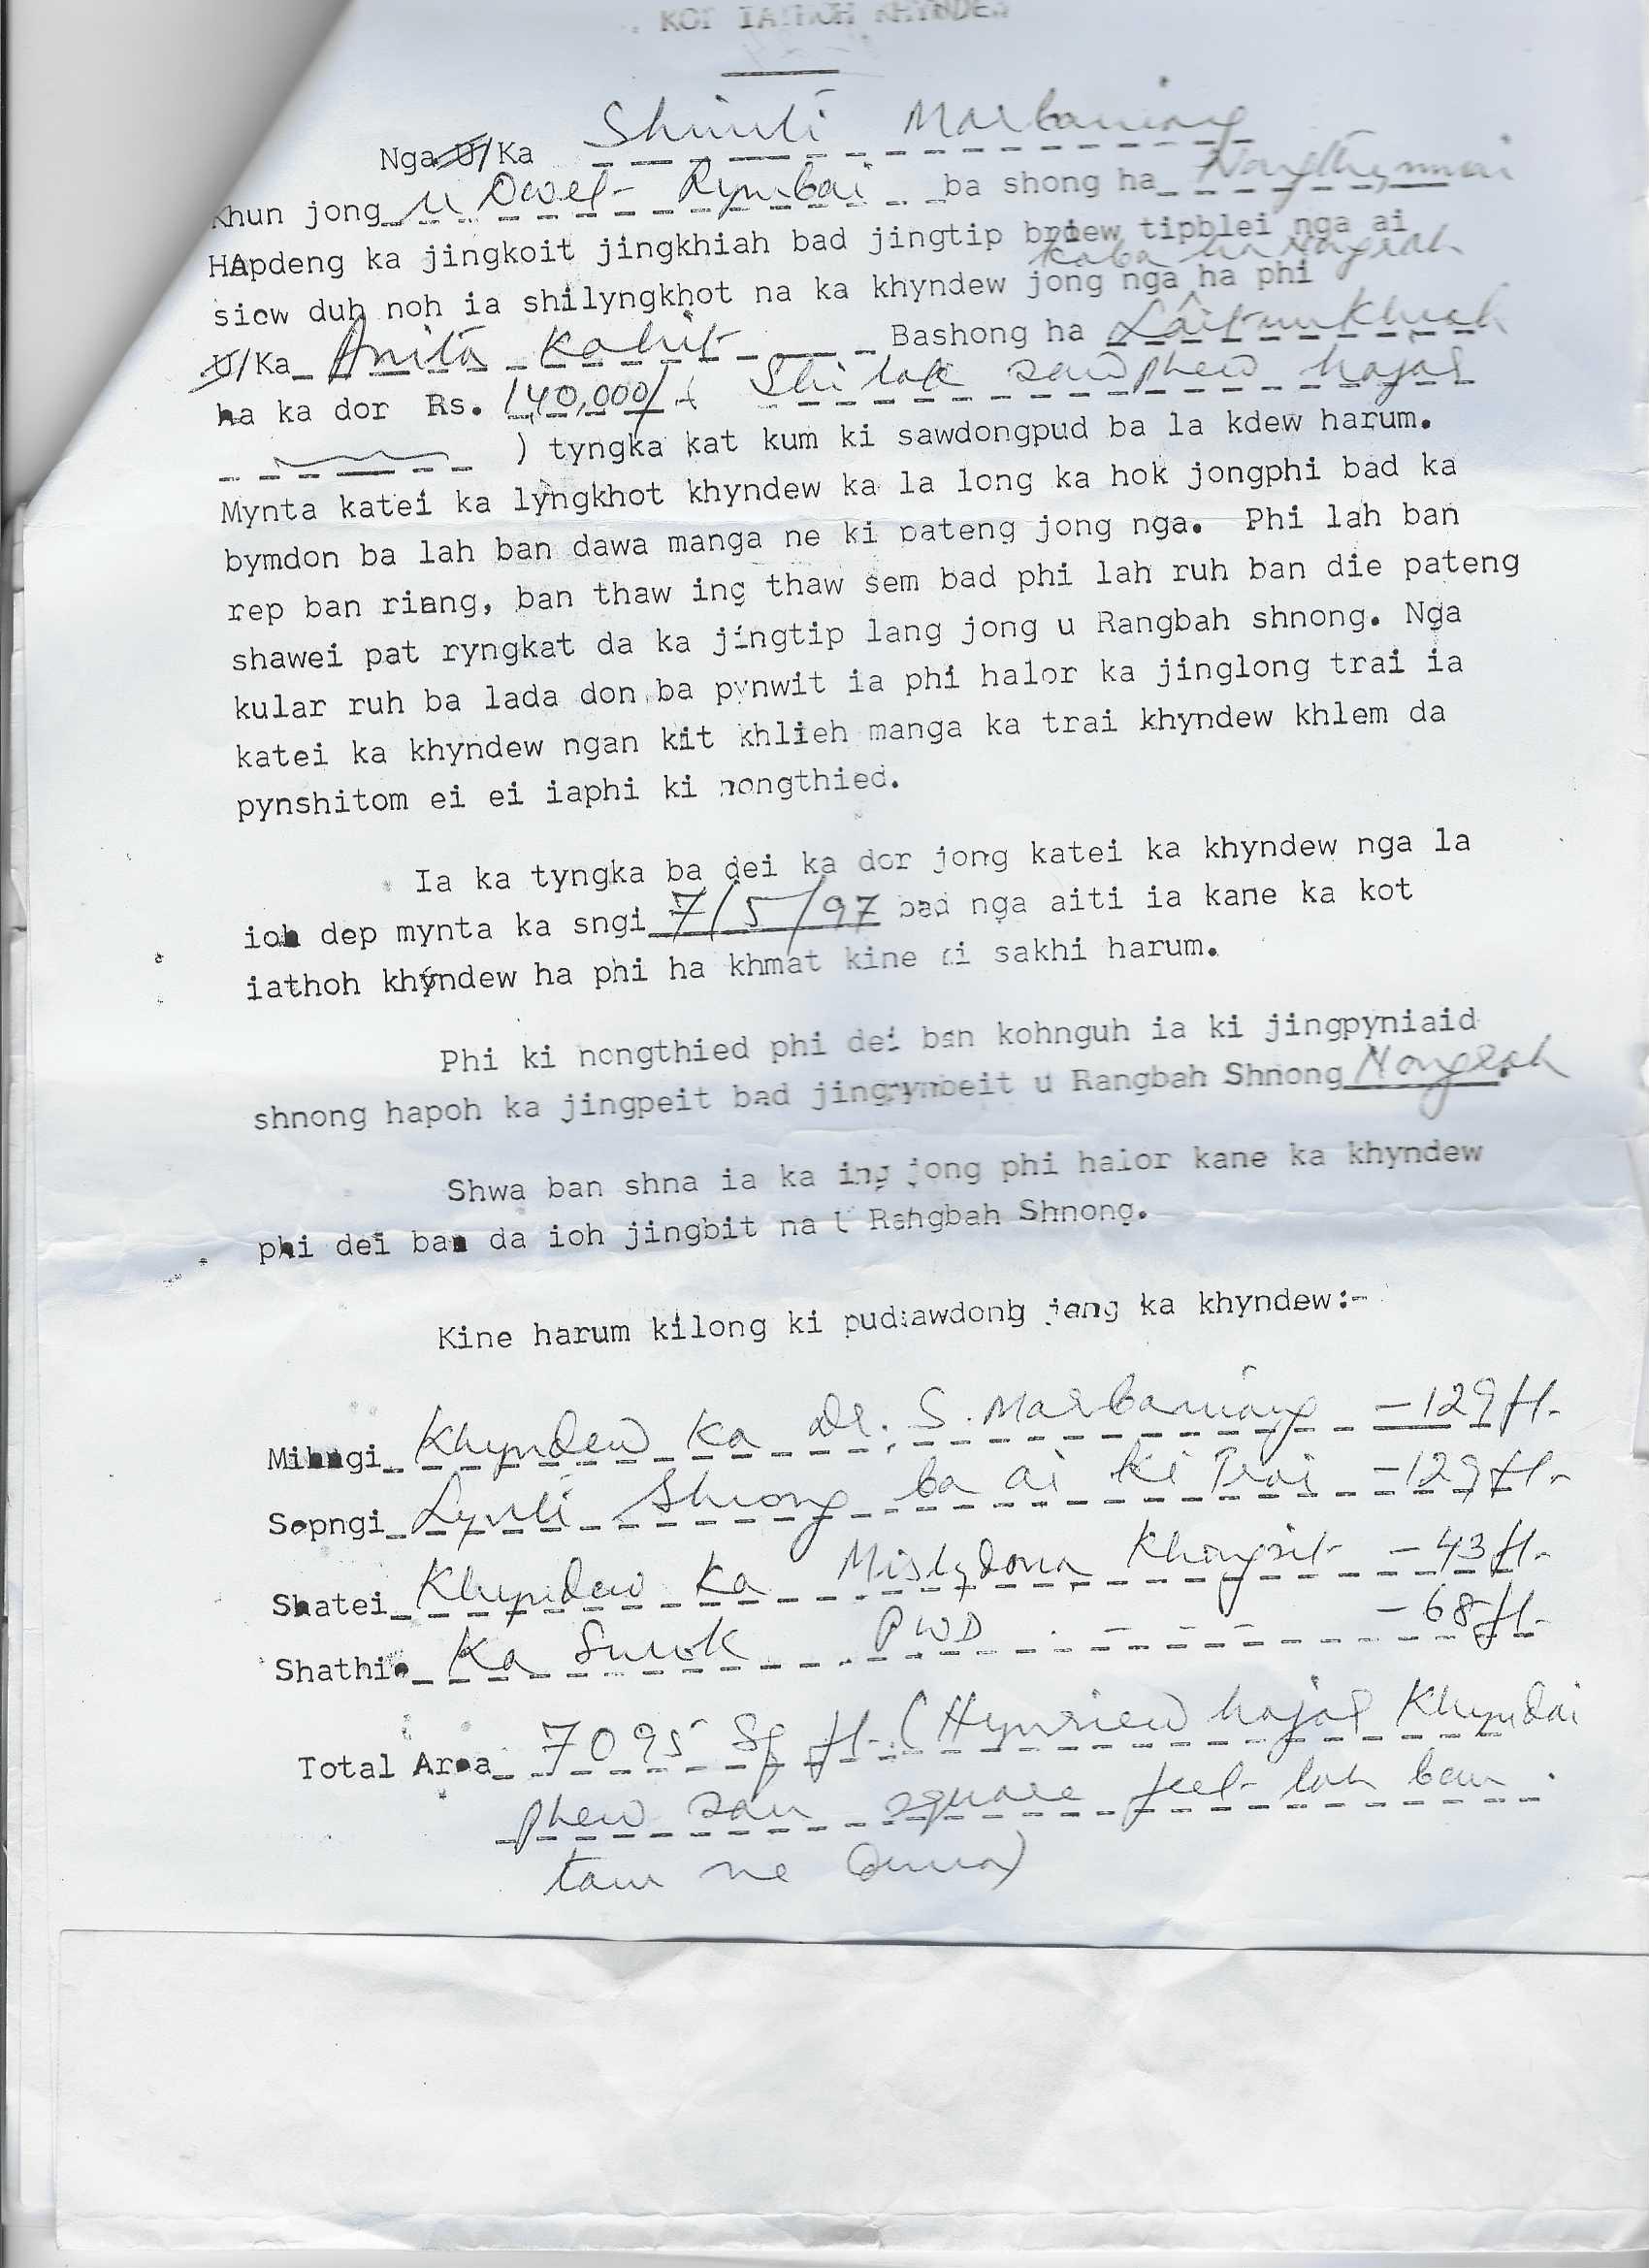 KOT IATHOH KHYNDEW
Nga U/Ka Shimti Marbaniang
Khun jong U Owel Rymbai ba shong ha Nongthymmai
HApdeng ka jingkoit jingkhiah bad jingtip briew tipblei nga ai
kaba ha Nongrah
siew duh noh ia shilyngkhot na ka khyndew jong nga ha phi
U/Ka Anita Kahit Bashong ha Laitumkhrah
ha ka dor Rs. 1,40,000/- ( Shi lak sawphew hajar
) tyngka kat kum ki sawdongpud ba la kdew harum.
Mynta katei ka lyngkhot khyndew ka la long ka hok jongphi bad ka
bymdon ba lah ban dawa manga ne ki pateng jong nga. Phi lah ban
rep ban riang, ban thaw ing thaw sem bad phi lah ruh ban die pateng
shawei pat ryngkat da ka jingtip lang jong u Rangbah shnong. Nga
kular ruh ba lada don ba pynwit ia phi halor ka jinglong trai ia
katei ka khyndew ngan kit khlieh manga ka trai khyndew khlem da
pynshitom ei ei iaphi ki nongthied.
Ia ka tyngka ba dei ka dor jong katei ka khyndew nga la
ioh dep mynta ka sngi 7/5/97 bad nga aiti ia kane ka kot
iathoh khyndew ha phi ha khmat kine ki sakhi harum.
Phi ki nongthied phi dei ban kohnguh ia ki jingpyniaid
shnong hapoh ka jingpeit bad jingrynbeit u Rangbah Shnong Nongrah.
Shwa ban shna ia ka ing jong phi halor kane ka khyndew
phi dei ban da ioh jingbit na U Rangbah Shnong.
Kine harum kilong ki pudsawdong jong ka khyndew:-
Mihngi Khyndew ka Dr. S. Marbaniang - 129 ft.
Sepngi Lynti Shnong ba ai ki Trai - 129 ft.
Shatei Khyndew ka Mislydona Khongsit - 43 ft.
Shathie Ka Surok PWD - 68 ft.
Total Area 7095 Sq ft. (Hynriew hajar Khyndai
phew san square feet lah ban
tam ne duna)